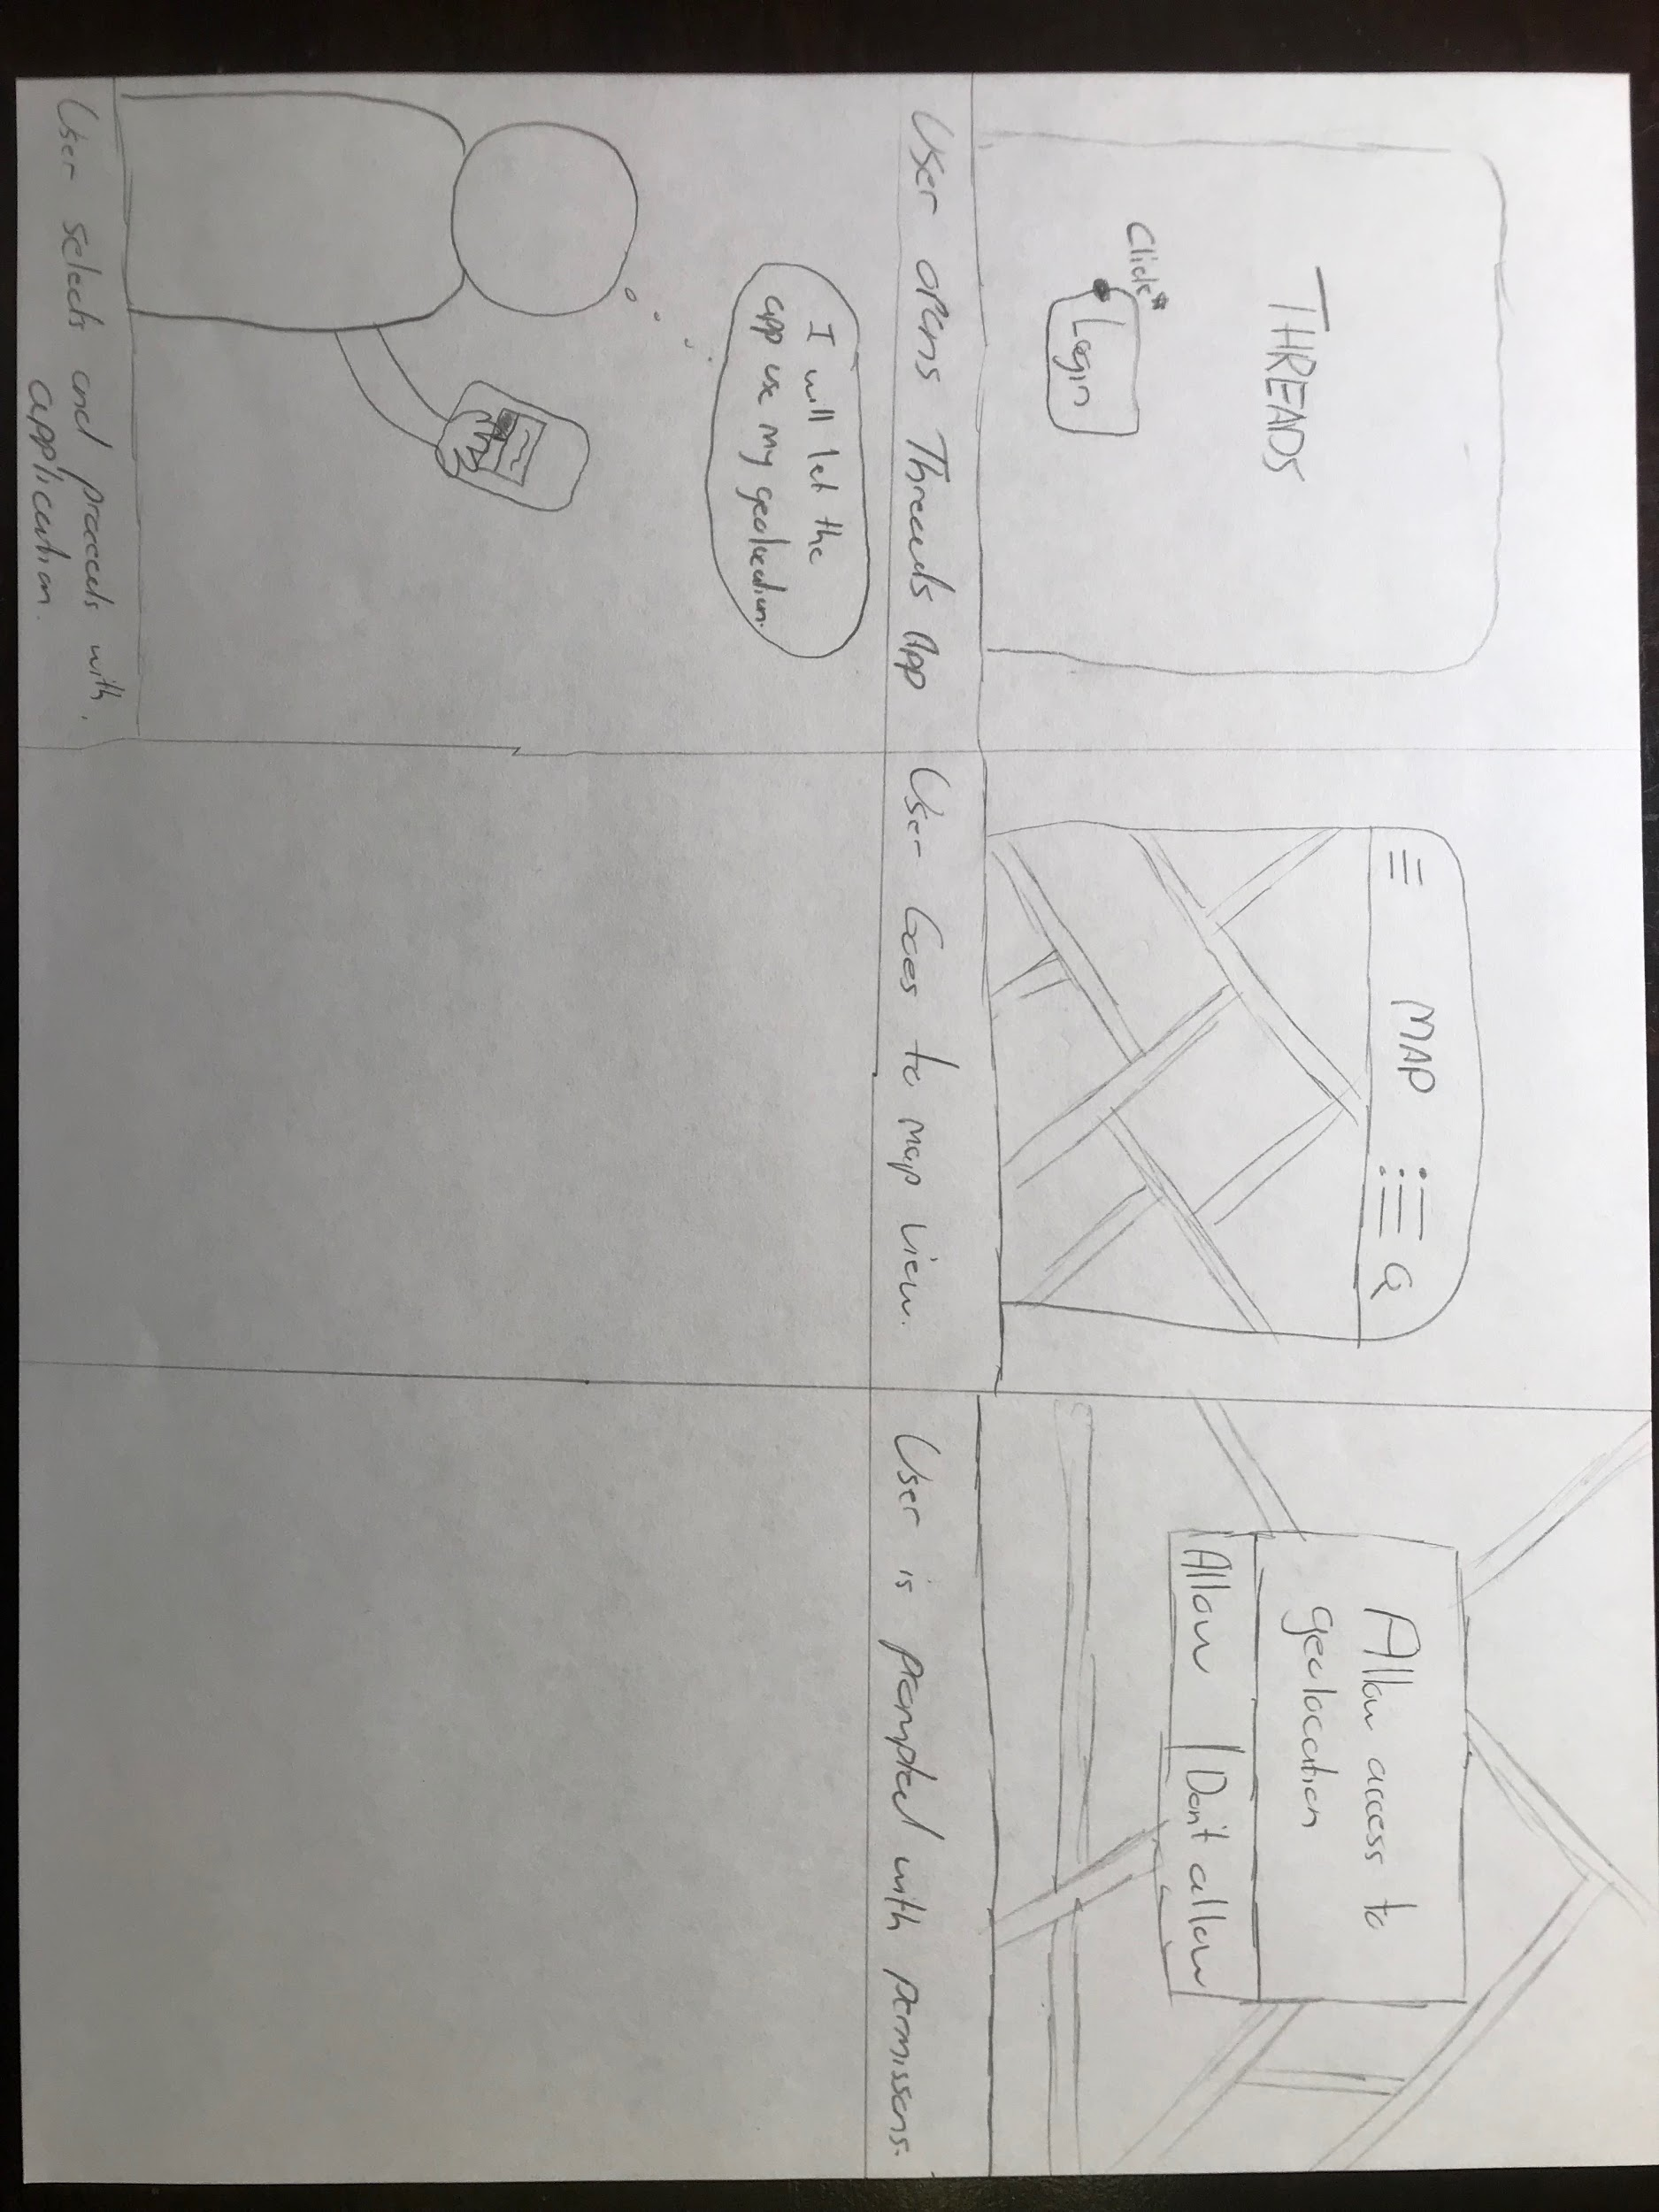 THREADS
Click*
Login
User opens Threads App
MAP
User Goes to map view.
Allow access to
geolocation
Allow | Don't allow
User is prompted with permissons.
I will let the
app use my geolocation.
User selects and proceeds with
application.